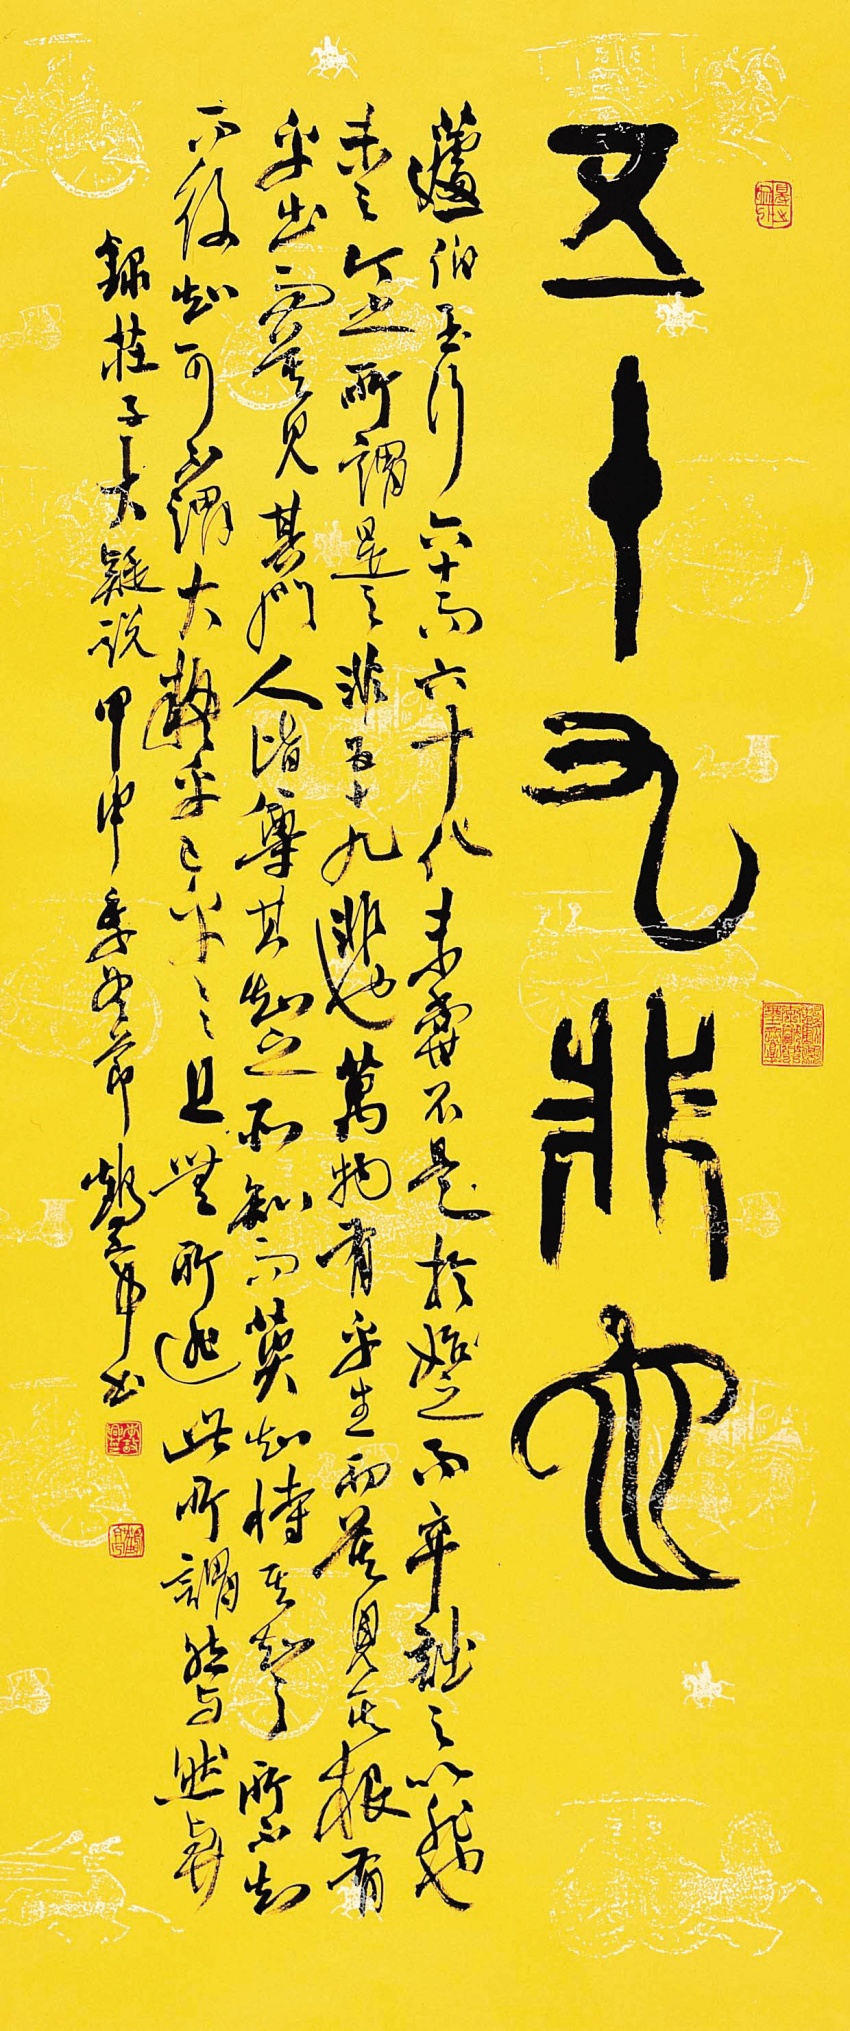 五十九非也
蘧伯玉行六十而六十化未嘗不是於始之而卒詘之以非也
未之今之所謂是之非五十九非也萬物有乎生而莫見其根有
乎出而莫見其門人皆尊其知之所知而莫知恃其知之所不知
而後知可不謂大疑乎已乎々々且無所逃此所謂然與然與
錄莊子大疑説甲申季節書